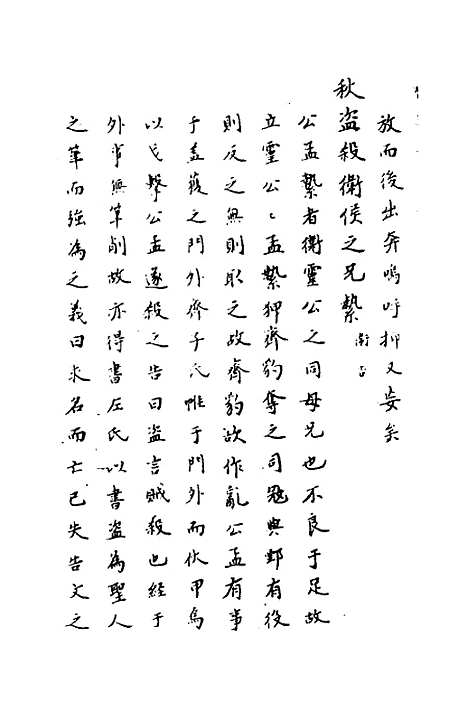 放而後出奔嗚呼抑又妄矣
秋盜殺衛侯之兄縶 衛告
公孟縶者衛靈公之同母兄也不良于足故
立靈公〻孟縶狎齊豹奪之司寇與鄄有役
則反之無則取之故齊豹欲作亂公孟有事
于蓋獲之門外齊子氏帷于門外而伏甲焉
以戈擊公孟遂殺之告曰盜言賊殺也經于
外事無筆削故亦得書左氏以書盜為聖人
之筆而強為之義曰求名而亡已失告文之